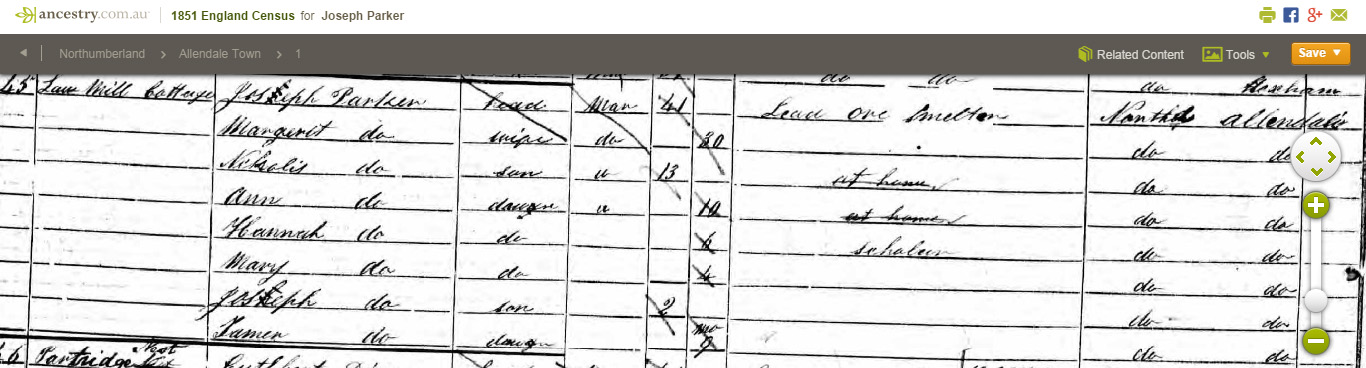 ancestry.com.au 1851 England Census for Joseph Parker
Northumberland > Allendale Town > 1 Related Content Tools Save
do do do Hexham
45 Law Mill Cottage Joseph Parker head Mar 41 Lead ore smelter North'd Allendale
Margerit do wife do 30 do do
Nicholis do son u 13 at home do do
Ann do daugr u 10 at home do do
Hannah do do 6 scholar do do
Mary do do 4 do do
Joseph do son 2 do do
Tamer do daugr mo 9 do do
46 Partridge Nest Cuthbert